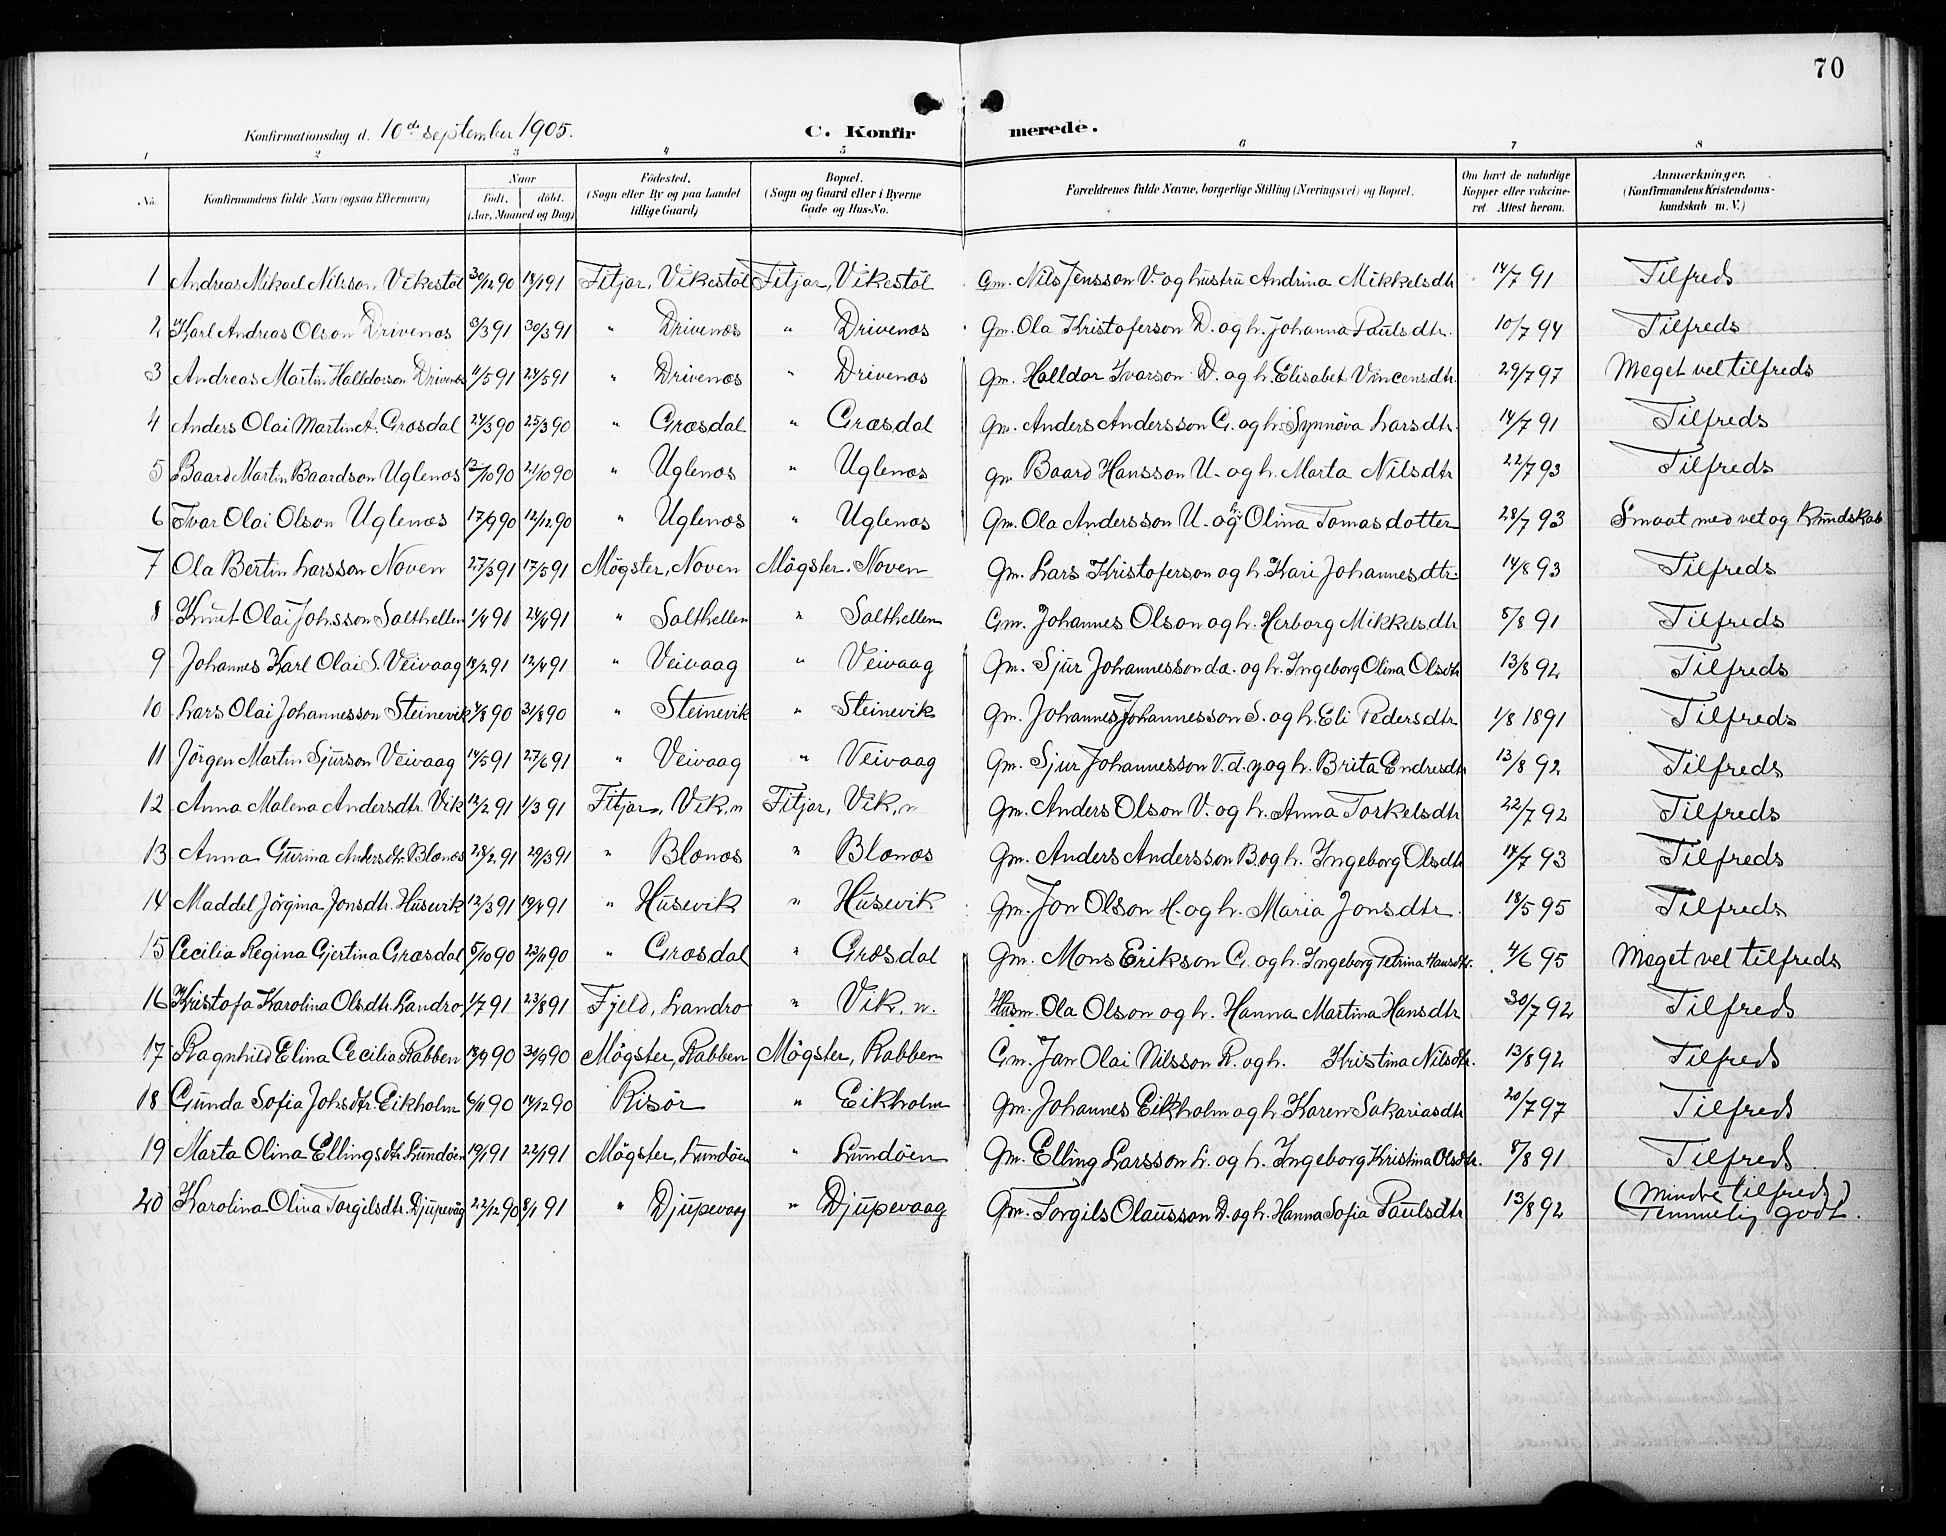 70
Konfirmationsdag d. 10de september 1905. C. Konfirmerede.
1 2 3 4 5 6 7 8
No. Konfirmandens fulde Navn (ogsaa Efternavn) Naar födt. döbt. (Aar, Maaned og Dag) Födested. (Sogn eller By og paa Landet tillige Gaard) Bopæl. (Sogn og Gaard eller i Byerne Gade og Hus-No. Forældrenes fulde Navne, borgerlige Stilling (Næringsvei) og Bopæl. Om havt de naturlige Kopper eller vaccineret Attest herom. Anmærkninger. (Konfirmandens Kristendomskundskab m. V.)
1 Andreas Mikael Nilsson Vikestöl 30/12 90 18/1 91 Fitjar, Vikestöl Fitjar, Vikestöl Gm. Nils Jensson V. og hustru Andrina Mikkelsdtr 14/7 91 Tilfreds
2 Karl Andreas Olson Drivenæs 3/3 91 30/3 91 " Drivenæs " Drivenæs Gm. Ola Kristoferson D. og h. Johanna Paulsdtr. 10/7 94 Tilfreds
3 Andreas Martin Halldorson Drivenæs 11/5 91 24/5 91 " Drivenæs " Drivenæs Gm. Halldor Ivarson D. og h. Elisabet Vincensdtr. 29/7 97 Meget vel tilfreds
4 Anders Olai Martin A. Græsdal 24/3 90 25/3 90 " Græsdal " Græsdal Gm. Anders Andersson G. og h. Synnöva Larsdtr. 14/7 91 Tilfreds
5 Baard Martin Baardson Uglenæs 12/10 90 21/10 90 " Uglenæs " Uglenæs Gm. Baard Hansson U. og h. Marta Nilsdtr 22/7 93 Tilfreds
6 Ivar Olai Olson Uglenæs 17/9 90 12/12 90 " Uglenæs " Uglenæs Gm. Ola Andersson U. og h. Olina Tomasdotter 28/7 93 Smaat med vet og kundskab
7 Ola Bertin Larsson Noven 27/3 91 17/5 91 Mögster, Noven Mögster. Noven Gm. Lars Kristoferson og h. Kari Johannesdtr 14/8 93 Tilfreds
8 Knut Olai Johsson Salthellen 1/4 91 24/4 91 " Salthellen " Salthellen Gm. Johannes Olson og h. Herborg Mikkelsdtr 5/8 91 Tilfreds
9 Johannes Karl Olai S. Veivaag 18/2 91 12/4 91 " Veivaag " Veivaag Gm. Sjur Johannesson d.æ. og h. Ingeborg Olina Olsdtr 13/8 92 Tilfreds
10 Lars Olai Johannesson Steinevik 4/8 90 31/8 90 " Steinevik " Steinevik Gm. Johannes Johannesson S. og h. Eli Pedersdtr 1/8 1891 Tilfreds
11 Jörgen Martin Sjurson Veivaag 14/5 91 27/6 91 " Veivaag " Veivaag Gm. Sjur Johannesson V. d.y. og h. Brita Endresdtr 13/8 92 Tilfreds
12 Anna Malena Andersdtr. Vik 12/2 91 1/3 91 Fitjar, Vik, n Fitjar, Vik, n Gm. Anders Olson V. og h. Anna Torkelsdtr 22/7 92 Tilfreds
13 Anna Gurina Andersdtr. Blænæs 28/2 91 29/3 91 " Blænæs " Blænæs Gm. Anders Andersson B. og h. Ingeborg Olsdtr 14/7 93 Tilfreds
14 Maddel Jörgina Jonsdtr. Husevik 12/3 91 19/4 91 " Husevik " Husevik Gm. Jon Olson H. og h. Maria Jonsdtr. 18/5 95 Tilfreds
15 Cecilia Regina Gjertina Græsdal 5/10 90 23/11 90 " Græsdal " Græsdal Gm. Mons Erikson G. og h. Ingeborg Petrina Hansdtr. 4/6 95 Meget vel tilfreds
16 Kristofa Karolina Olsdtr. Landro 1/7 91 23/8 91 Fjeld, Landro " Vik, n. Husm. Ola Olson og h. Hanna Martina Hansdtr 30/7 92 Tilfreds
17 Ragnhild Elina Cecilia Rabben 18/9 90 30/9 90 Mögster, Rabben Mögster, Rabben Gm. Jan Olai Nilsson R. og h. Kristina Nilsdtr. 13/8 92 Tilfreds
18 Gunda Sofia Johsdtr. Eikholm 6/11 90 14/12 90 Risör " Eikholm Gm. Johannes Eikholm og h. Karen Sakariasdtr 20/7 97 Tilfreds
19 Marta Olina Ellingsdtr Lundöen 19/1 91 22/1 91 Mögster, Lundöen " Lundöen Gm. Elling Larsson L. og h. Ingeborg Kristina Olsdtr. 8/8 91 Tilfreds
20 Karolina Olina Torgilsdtr. Djupevåg 22/12 90 8/1 91 " Djupevaag " Djupevaag Gm. Torgils Olausson D. og h. Hanna Sofia Paulsdtr 13/8 92 (Mindre tilfreds) Temmelig godt.